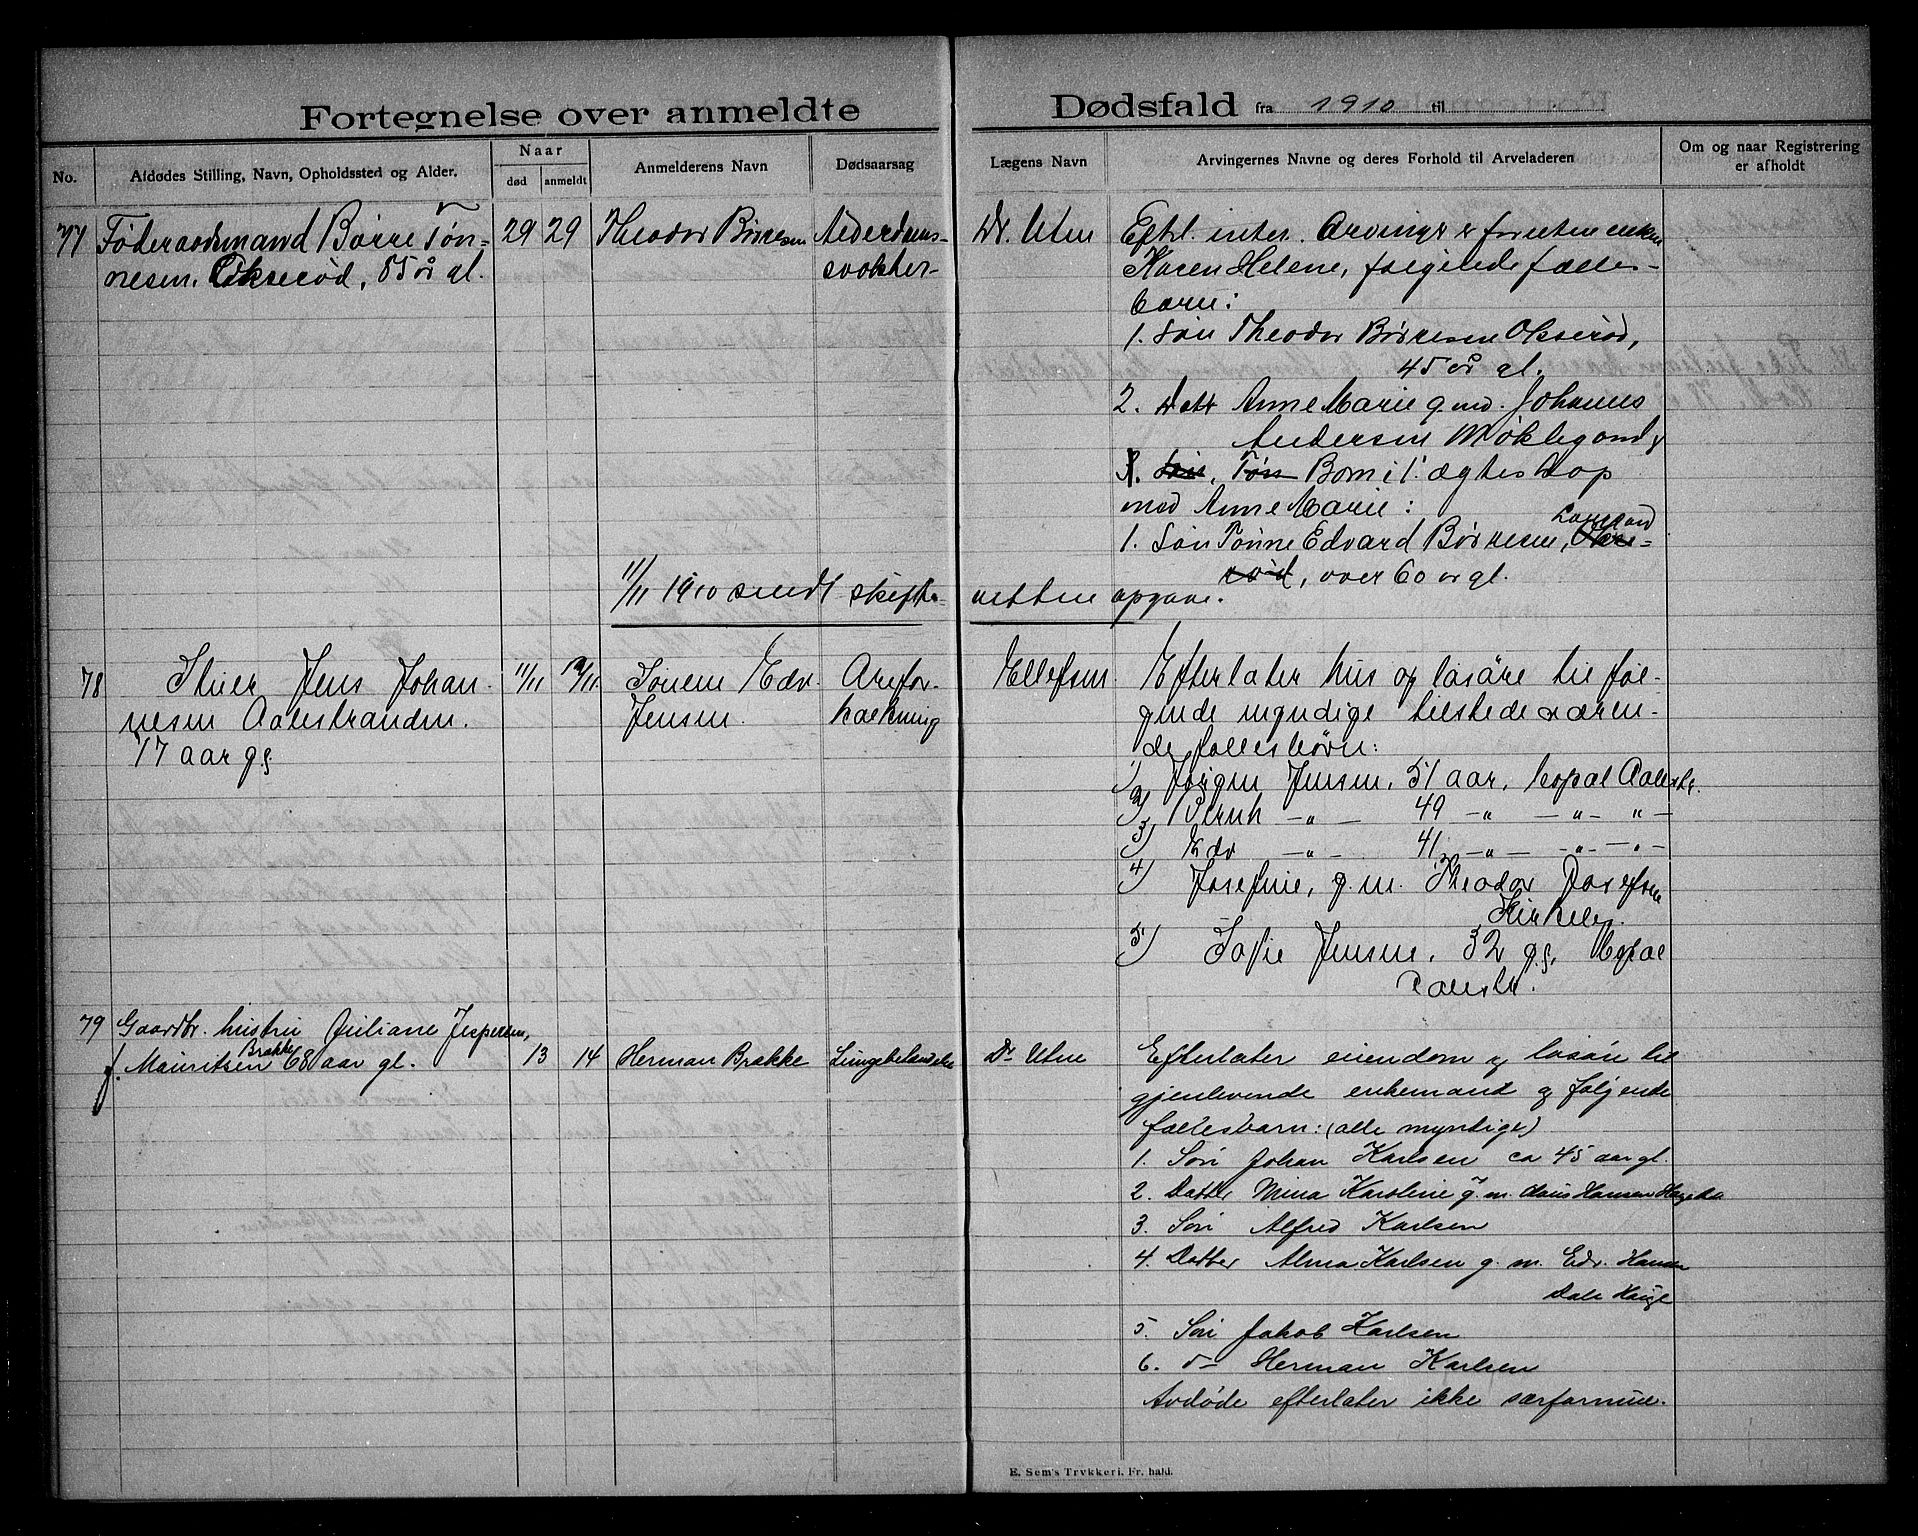 Fortegnelse over anmeldte Dødsfald fra 1910 til
No.
Afdødes Stilling, Navn, Opholdssted og Alder.
Naar
død
anmeldt
Anmelderens Navn
Dødsaarsag
Lægens Navn
Arvingernes Navne og deres Forhold til Arveladeren
Om og naar Registrering
er afholdt
77
Føderaadsmand Børre Tøn-
nesen, Okserød, 85 år gl.
29
29
Theodor Børresen
Alderdoms-
svakhet
Dr. Utne
Efterl. intet. Arvinger er foruten enken
Karen Helene, følgende fælles-
barn:
1. Søn Theodor Børresen Okserød,
45 år gl.
2. Datt Anne Marie g. m. Johannes
Andersen Møklegaard,
3. Søn, Tøn Born i 1. ægteskap
med Anne Marie:
1. Søn Tønne Edvard Børresen,
rød, over 60 år gl.
11/11 1910 sendt skifte-
retten opgave.
78
Jens Johan-
nesen Aalestranden.
77 aar gl.
11/11
/11
Edv.
Jensen.
Arefor-
kalkning
Ellefsen
Efterlater hus og løsøre til føl-
gende myndige tilstedeværen-
de fællesbørn:
1) Jørgen Jensen, 51 aar, bopæl Aalestr.
2) Bernh — „ — 49 — „ — „ — „ —
3) Edv — „ — 41 — „ — „ — „ —
4) Josefine, g. m. Theodor Josefsen
Kirkeby.
5) Sofie Jensen, 32 gl, bopæl
Aalestr.
79
Gaardbr. hustru Juliane Jespersen,
f. Mauritsen Brække 68 aar gl.
13
14
Herman Brække
Lungebetændelse
Dr Utne
Efterlater eiendom og løsøre til
gjenlevende enkemand og følgende
fællesbarn: (alle myndige)
1. Søn Johan Karlsen ca 45 aar gl.
2. Datter Mina Karoline g. m. Hans Hansen
3. Søn Alfred Karlsen
4. Datter Alma Karlsen g. m. Edv. Hansen
Dale Hauge
5. Søn Jakob Karlsen
6. d— Herman Karlsen
Avdøde efterlater ikke særformue.
E. Sem's Trykkeri, Fr. hald.